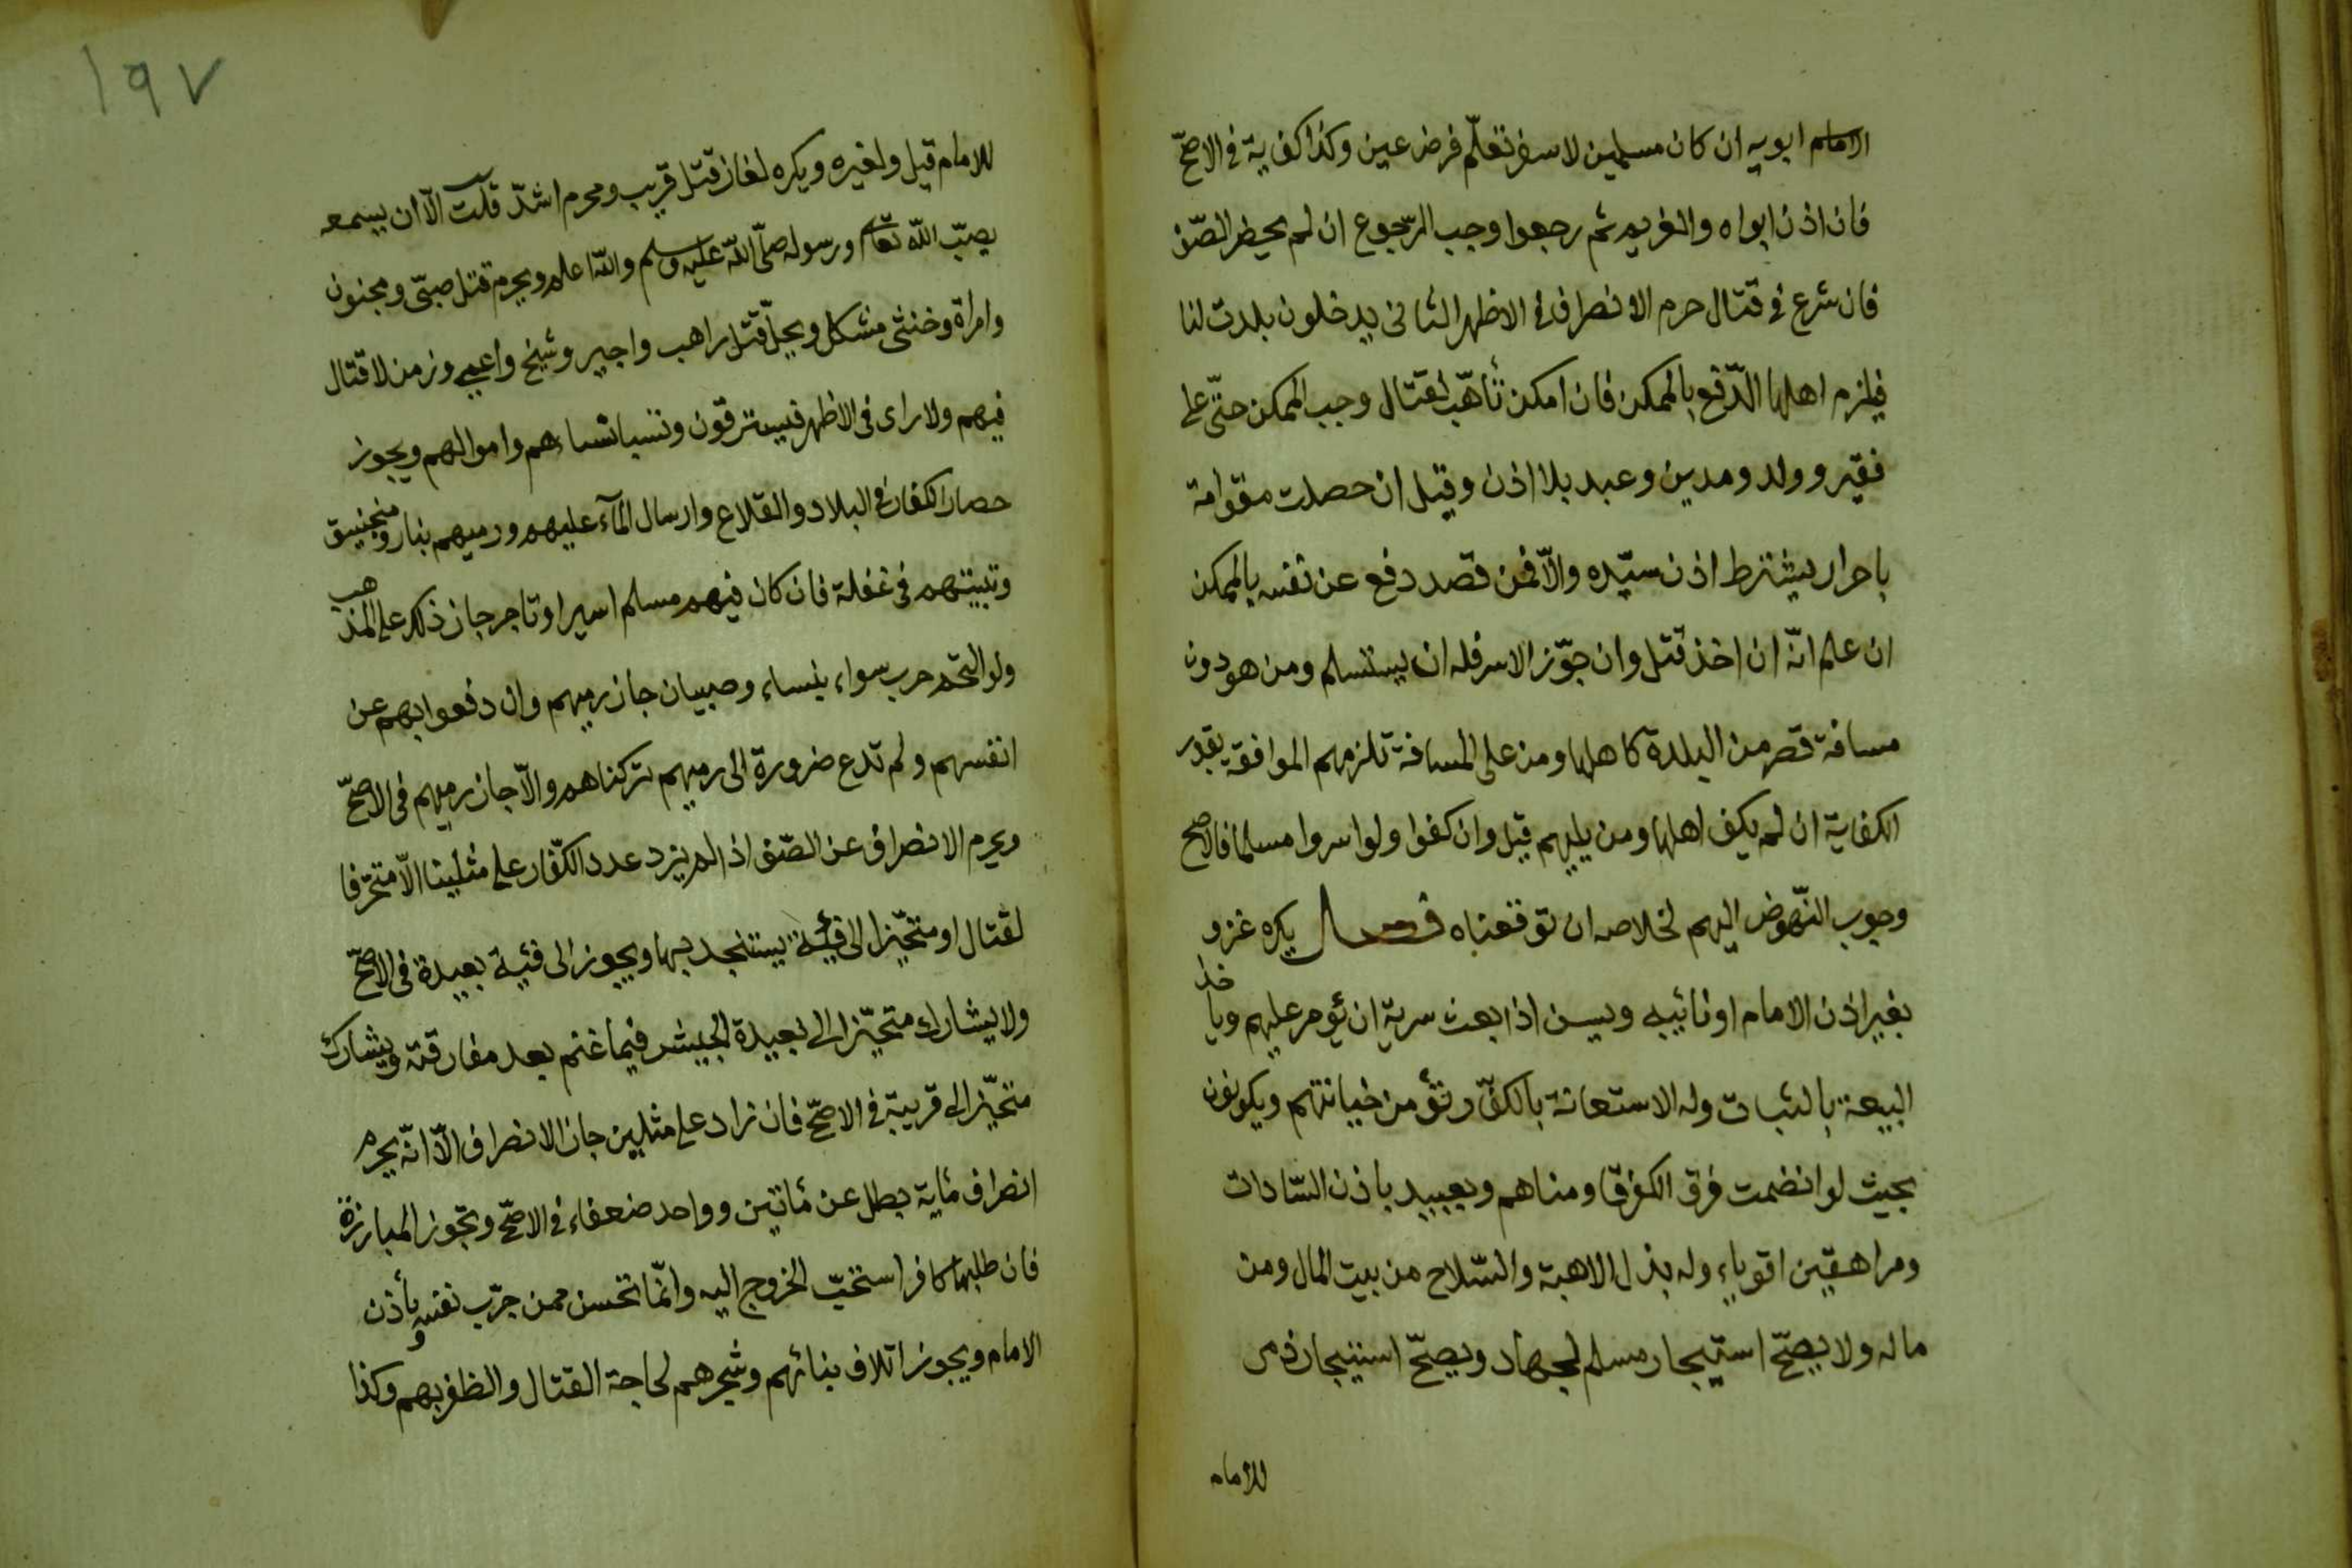 الامام ابويه ان كان مسلمين لا سفر تعلّم فرض عين وكذا كفاية في الاصحّ
فان اذن ابواه والغريم ثم رجعوا وجب الرّجوع ان لم يحضر الصّف
فان شرع في قتال حرم الانصراف في الاظهر الثانى يدخلون بلدت لنا
فيلزم اهلها الدّفع بالممكن فان امكن تأهّب لقتال وجب الممكن حتّى على
فقير وولد ومدين وعبد بلا اذن وقيل ان حصلت مقوامة
باحرار يشترط اذن سيّده والاّ فمن قصد دفع عن نفسه بالممكن
ان علم انّه ان اخذ قتل وان جوّز الاسر فله ان يستسلم ومن هو دون
مسافة قصر من البلدة كاهلها ومن على المسافة تلزمهم الموافقة بقدر
الكفاية ان لم يكف اهلها ومن يليهم قيل وان كفوا ولو اسروا مسلما فالاصح
وجوب النّهوض اليهم لخلاصه ان توقعناه فصل يكره غزو
بغير اذن الامام او نائيبه ويسن اذا بعث سرية ان يؤمر عليهم وياخذ
البيعة بالثبات وله الاستعانة بالكفّار تؤمن خيانتهم ويكونون
بحيث لو انضمت فرق الكفر قاومناهم وبعبيد باذن السّادات
ومراهقين اقوياء وله بذل الاهبة والسّلاح من بيت المال ومن
ماله ولا يصحّ استيجار مسلم لجهاد ويصحّ استيجار ذمى
للامام
١٩٧
للامام قيل ولغيره ويكره لغاز قتل قريب ومحرم اشدّ قلت الاّ ان يسمعه
يصبّ الله تعالى ورسوله صلّى الله عليه وسلم والله اعلم ويحرم قتل صبىّ ومجنون
وامراة وخنثى مشكل ويحلّ قتل راهب واجير وشيخ واعمى وزمن لا قتال
فيهم ولا راى فى الاظهر فيسترقون ونسبا نساءهم واموالهم ويجوز
حصار الكفار في البلاد والقلاع وارسال المآء عليهم ورميهم بنار ومنجنيق
وتبييتهم فى غفلة فان كان فيهم مسلم اسير او تاجر جاز ذلك على المذهب
ولو التحم حرب سواء بنساء وصبيان جاز رميهم وان دفعوا بهم عن
انفسهم ولم تدع ضرورة الى رميهم تركناهم والاّ جاز رميهم فى الاصحّ
ويحرم الانصراف عن الصّف اذا لم يزد عدد الكفّار على مثلينا الاّ متحرّفا
لقتال او متحيّزا الى فئية يستنجد بها ويجوز الى فئية بعيدة فى الاصحّ
ولا يشارك متحيّز الى بعيدة الجيش فيما غنم بعد مفارقته ويشارك
متحيّز الى قريبة في الاصحّ فان زاد على مثلين جاز الانصراف الاّ انّه يحرم
انصراف مأية بطل عن مأتين وواحد ضعفاء في الاصحّ وتجوز المبارزة
فان طلبها كافر استحبّ الخروج اليه وانّما تحسن ممن جرّب نفسه وبأذن
الامام ويجوز اتلاف بنائهم وشجرهم لحاجة القتال والظفر بهم وكذا